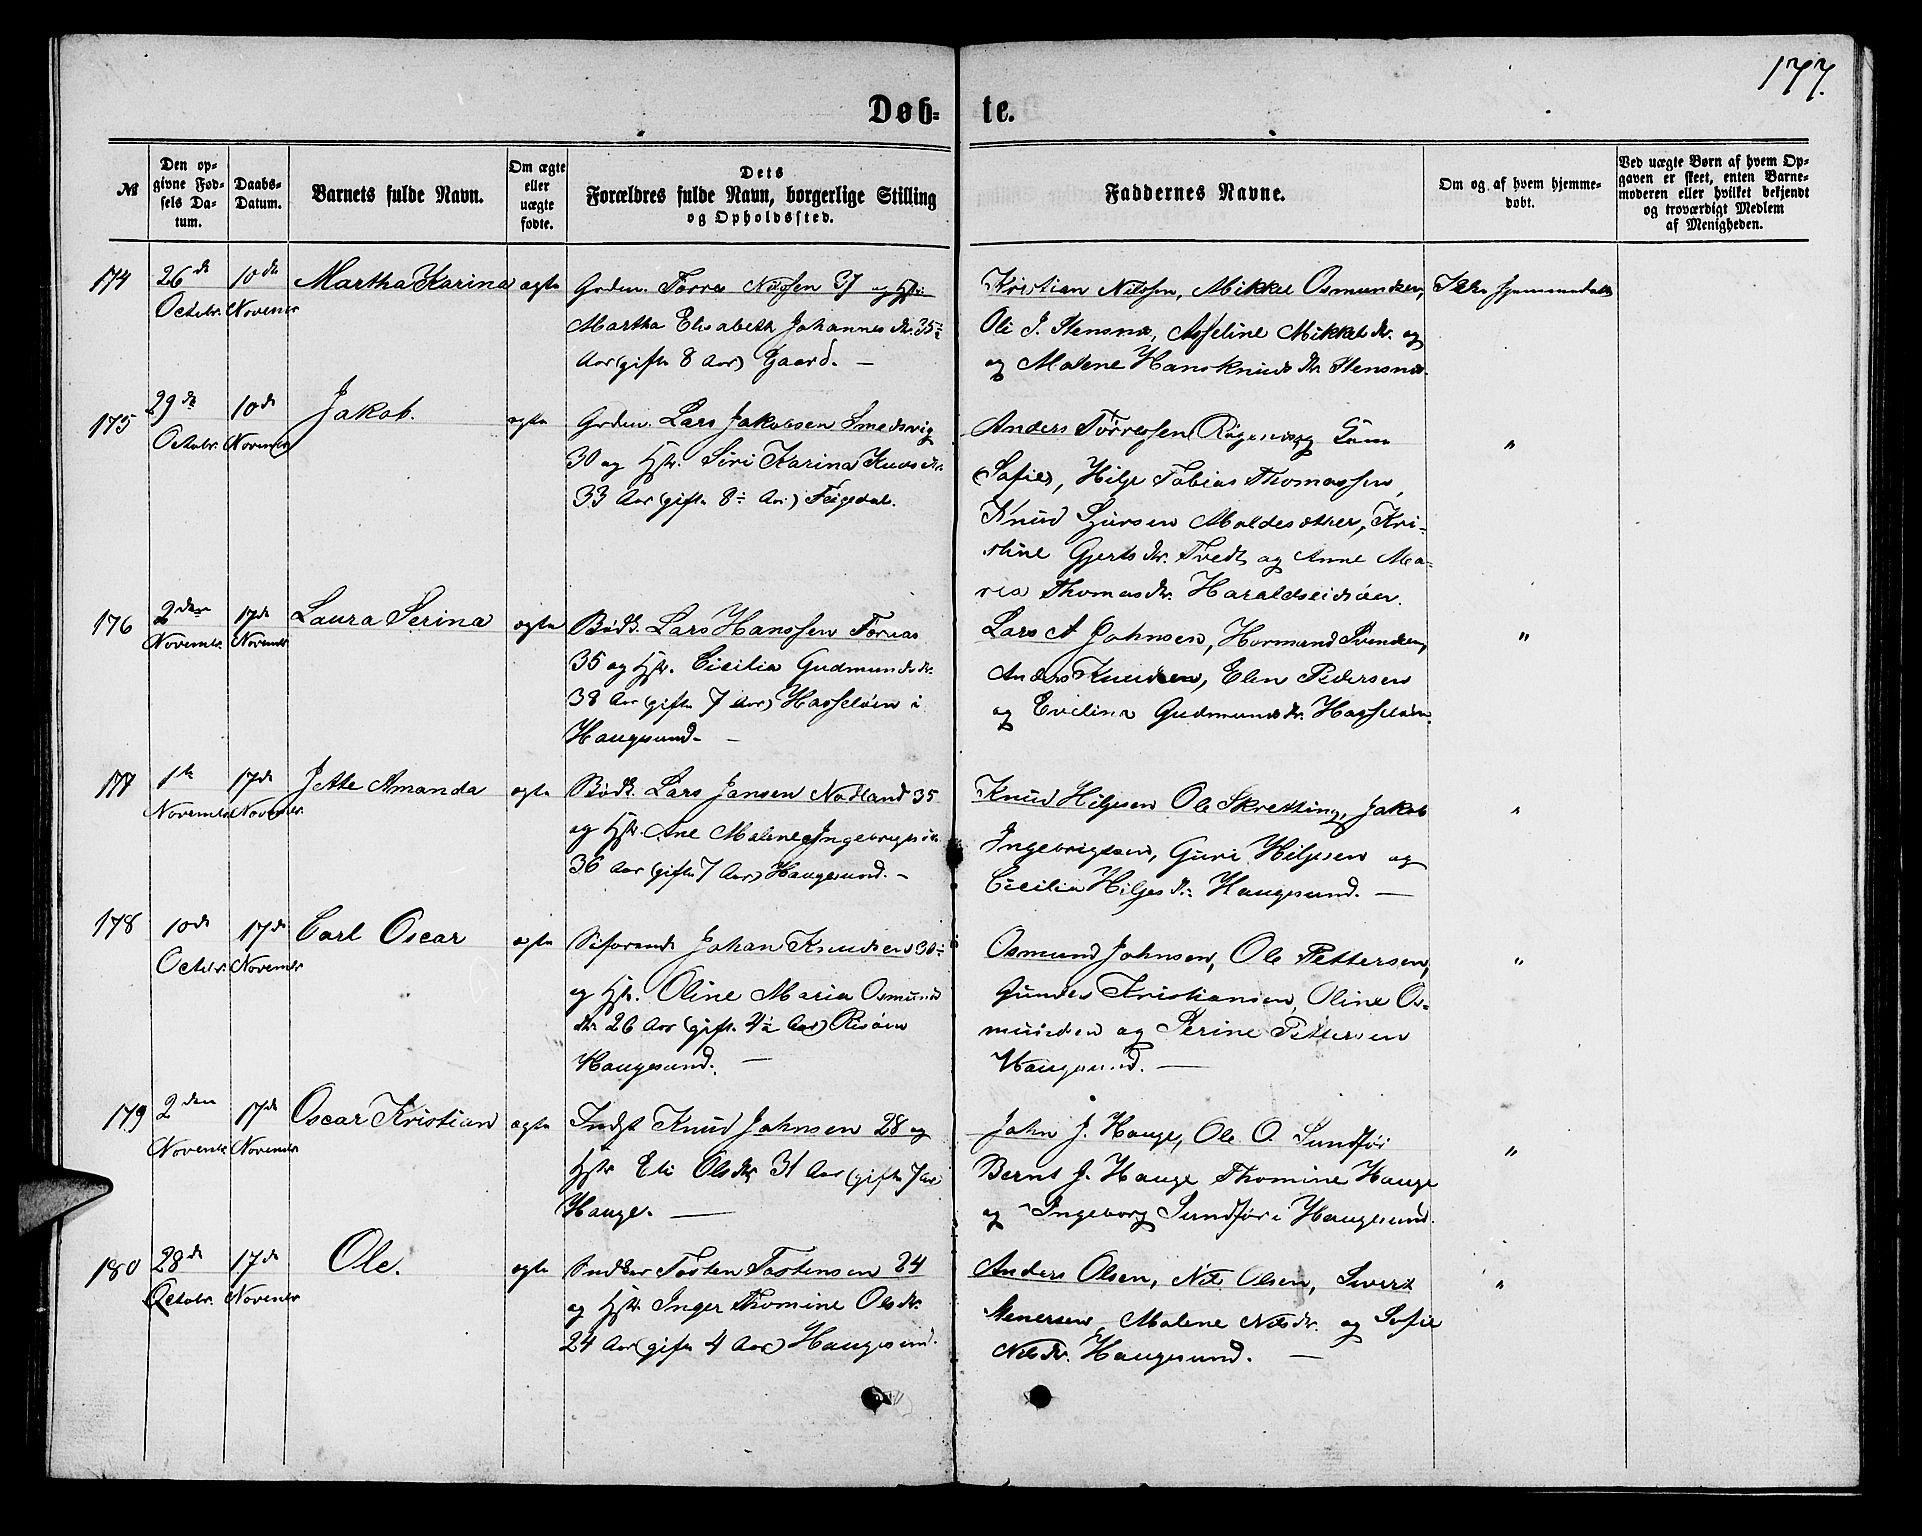 177.
Døb- te.
№
Den opgivne Fødsels Datum.
Daabs-Datum.
Barnets fulde Navn.
Om ægte eller uægte fødte.
Dets Forældres fulde Navn, borgerlige Stilling og Opholdssted.
Faddernes Navne.
Om og af hvem hjemmedøbt.
Ved uægte Børn af hvem Opgaven er skeet, enten Barnemoderen eller hvilket bekjendt og troværdigt Medlem af Menigheden.
174
26de Octobr.
10de Novembr
Martha Karina
ægte
Grdm. Torres Nilssen 37 og Hstr.
Martha Elisabeth Johannesdtr. 35
Aar (gifte 8 Aar) Gaard. —
Kristian Nilssen, Mikkel Osmundsen,
Ole J. Stensnæs, Asseline Mikkelsdtr. og
og Malene Hansknudsdtr. Stensnæs.
Ikke hjemmedøbt
175
29de Octobr.
10de Novembr
Jakob.
ægte
Grdm. Lars Jakobsen Smedsvig
30 og Hstr. Siri Karina Knudsdtr.
33 Aar (gifte 8 Aar) Feigedal.
Anders Tørresen
Sofie, Hilge Tobias Thomassen,
Knud Sjursen Maldesæther, Kri-
stine Gjertsdtr. Tvedt og Anne Ma-
ria Thomasdtr. Haraldseidsøen.
"
176
2den Novembr.
17de Novembr
Laura Serina
ægte
Bødk. Lars Hanssen
35 og Hstr. Cicilia Gudmundsdtr.
38 Aar (gifte 7 Aar) Hasseløen i
Haugesund. —
Lars A Johnsen, Hormand Svendsen,
Anders Knudsen, Elen Pedersen
og Evelina Gudmundsdtr. Hasseløen.
"
177
1ste Novembr
17de Novembr.
Jette Amanda
ægte
Bødk. Lars Jansen Nodland 35
og Hstr. Ane Malene Ingebrigtsdtr.
36 Aar (gifte 7 Aar) Haugesund. —
Knud Hilgesen Ole Skretting, Jakob
Ingebrigtsen, Guri Hilgesen og
Cicilia Hilgesdtr. Haugesund. —
"
178
10de Octobr.
17de Novembr
Carl Oscar
ægte
Søfarende Johan Knudsen 30
og Hstr. Oline Maria Osmunds
dtr. 26 Aar (gift. 4½ Aar) Risøen
Haugesund. —
Osmund Johnsen, Ole Pettersen,
Gunder Kristiansen, Oline Os-
mundsen og Serine Pettersen
Haugesund. —
"
179
2den Novembr
17de Novembr
Oscar Kristian
ægte
Indst Knud Johnsen 28 og
Hstr Eli Olsdtr. 31 Aar (gifte 7 Aar)
Hauge. —
John J. Hauge, Ole O. Sundfør
Bernt J. Hauge Thomine Hauge
og Ingeborg Sundfør i Haugesund.
"
180
28de Octobr.
17de Novembr
Ole.
ægte
Snedker Tosten Tostensen 24
og Hstr. Inger Thomine Olsdtr.
24 Aar (gifte 4 Aar) Haugesund.
Anders Olsen, Nils Olsen, Sivert
Stenersen, Malene Nilsdtr. og Sofie
Nilsdtr. Haugesund. —
"